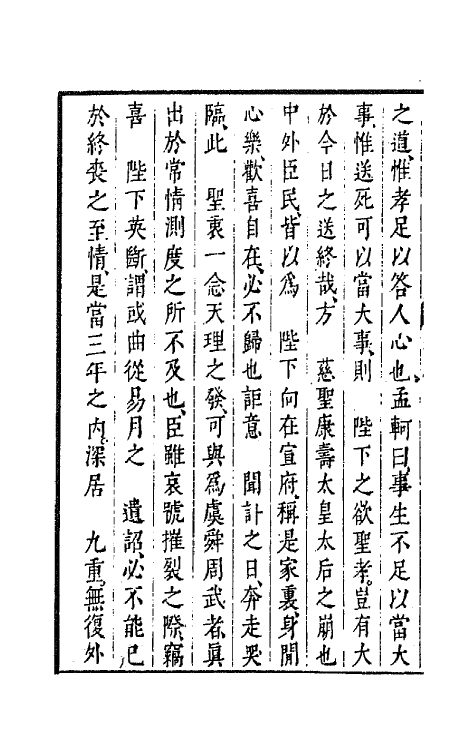 之道、惟孝足以答人心也、孟軻曰、事生不足以當大
事、惟送死可以當大事、則　陛下之欲聖孝。豈有大
於今日之送終哉、方　慈聖康壽太皇太后之崩也
中外臣民、皆以為　陛下向在宣府、稱是家裏、身閒
心樂、歡喜自在、必不歸也詎意　聞訃之日、奔走哭
臨、此　聖衷一念天理之發、可與為虞舜周武者、眞
出於常情測度之所不及也、臣雖哀號摧裂之際、竊
喜　陛下英斷、謂或曲從易月之　遺詔、必不能已
於終喪之至情、是當三年之內、深居　九重、無復外